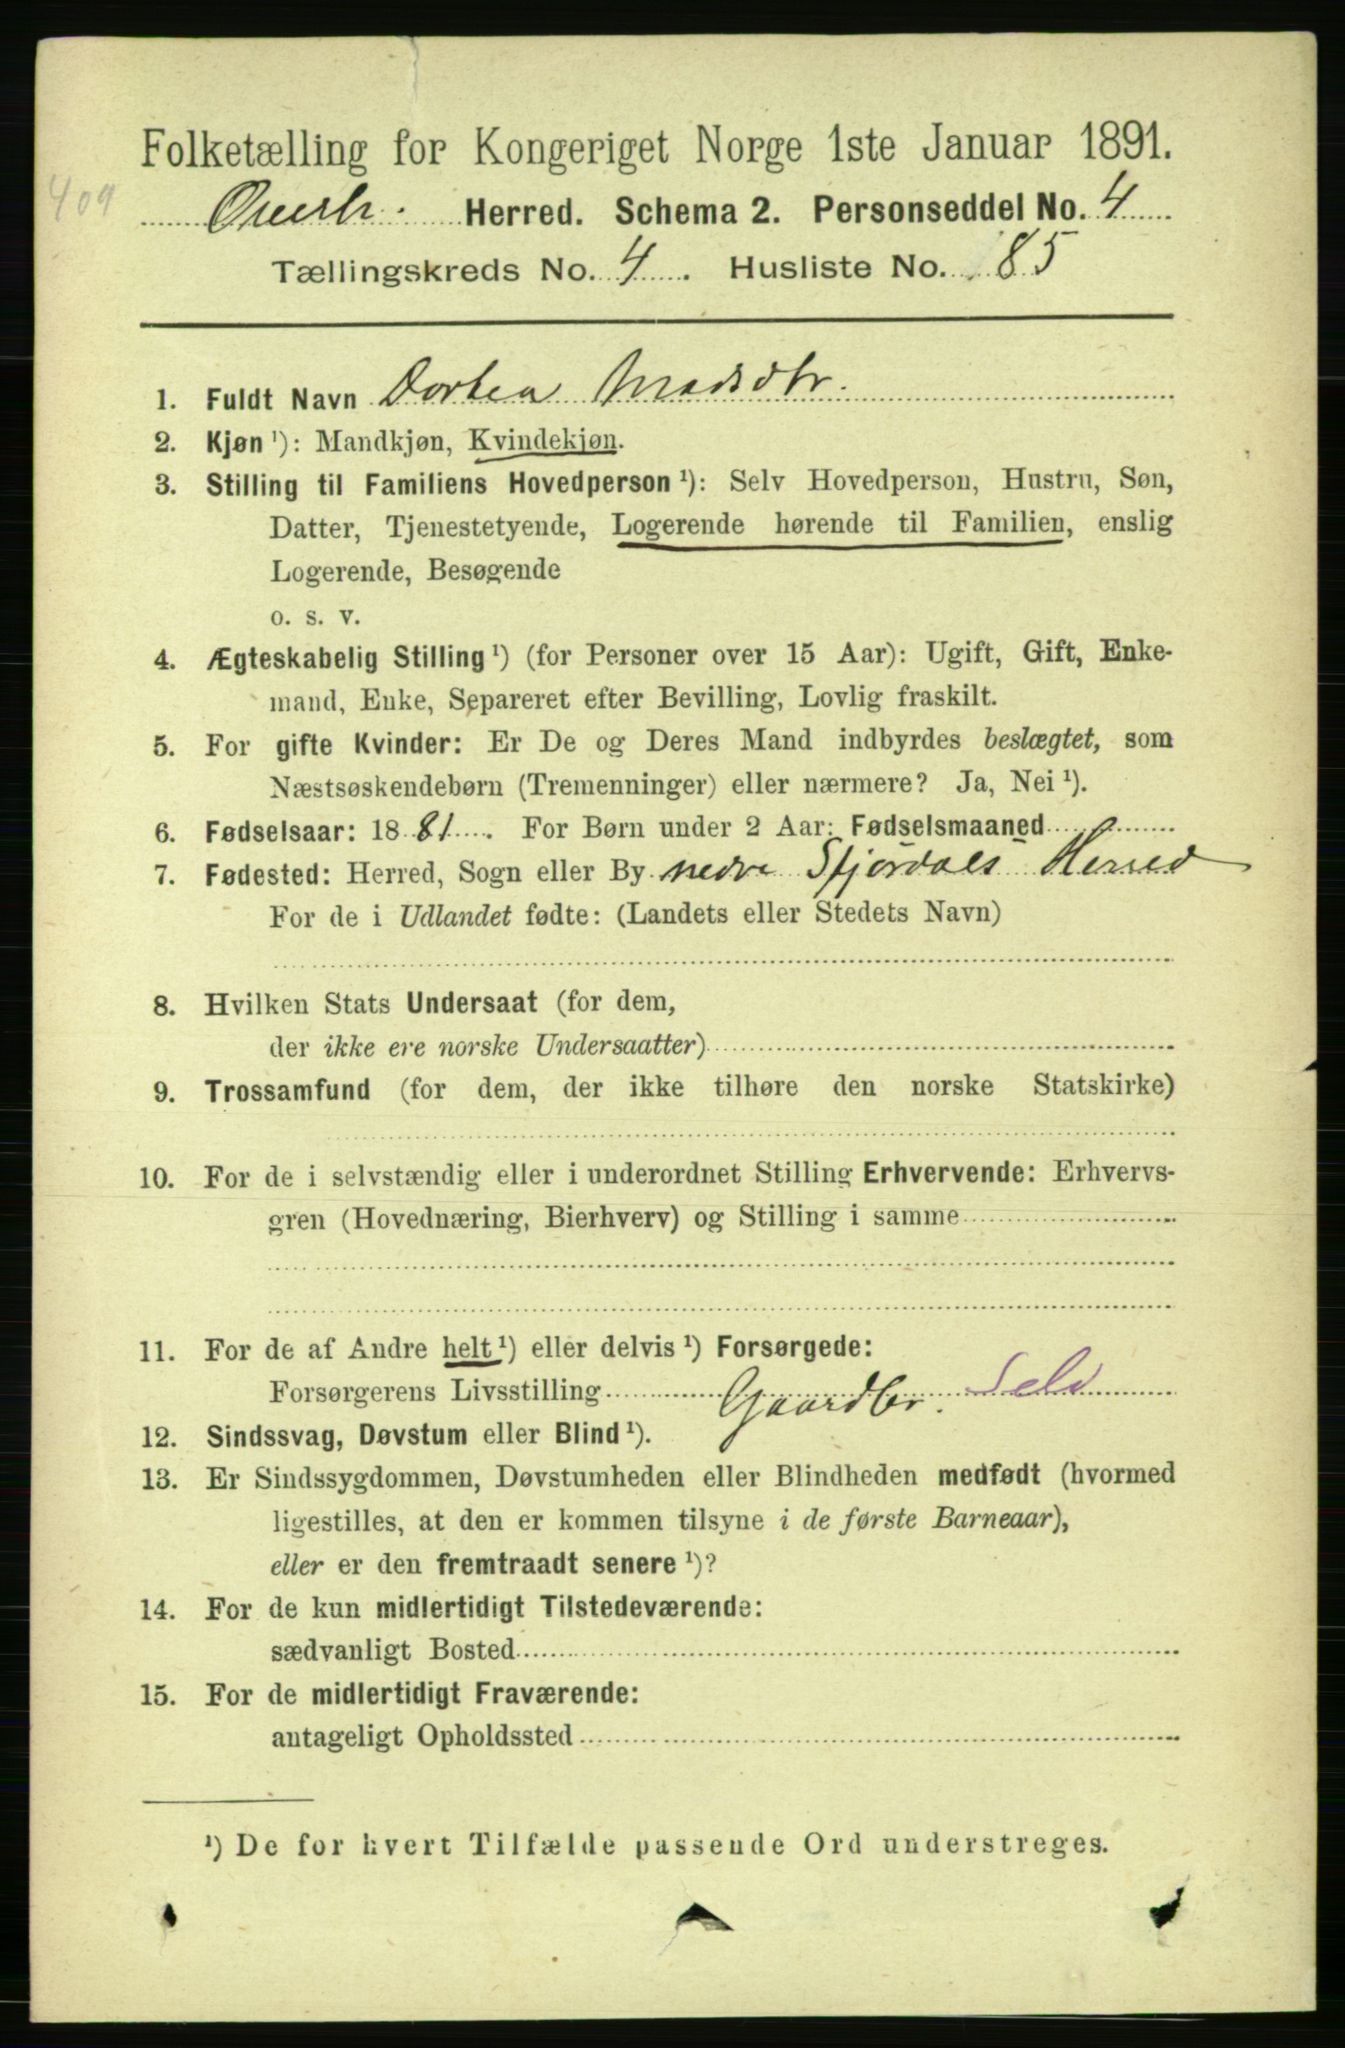 Folketælling for Kongeriget Norge 1ste Januar 1891.
409
Herred. Schema 2. Personseddel No. 4
Tællingskreds No. 4. Husliste No. 85
1. Fuldt Navn Dortea Madsdtr.
2. Kjøn ¹): Mandkjøn, Kvindekjøn.
3. Stilling til Familiens Hovedperson ¹): Selv Hovedperson, Hustru, Søn,
Datter, Tjenestetyende, Logerende hørende til Familien, enslig
Logerende, Besøgende
o. s. v.
4. Ægteskabelig Stilling ¹) (for Personer over 15 Aar): Ugift, Gift, Enke-
mand, Enke, Separeret efter Bevilling, Lovlig fraskilt.
5. For gifte Kvinder: Er De og Deres Mand indbyrdes beslægtet, som
Næstsøskendebørn (Tremenninger) eller nærmere? Ja, Nei ¹).
6. Fødselsaar: 1881. For Børn under 2 Aar: Fødselsmaaned
7. Fødested: Herred, Sogn eller By nedre Stjørdals Herred
For de i Udlandet fødte: (Landets eller Stedets Navn)
8. Hvilken Stats Undersaat (for dem,
der ikke ere norske Undersaatter)
9. Trossamfund (for dem, der ikke tilhøre den norske Statskirke)
10. For de i selvstændig eller i underordnet Stilling Erhvervende: Erhvervs-
gren (Hovednæring, Bierhverv) og Stilling i samme
11. For de af Andre helt ¹) eller delvis ¹) Forsørgede:
Forsørgerens Livsstilling Gaardbr. Selv
12. Sindssvag, Døvstum eller Blind ¹).
13. Er Sindssygdommen, Døvstumheden eller Blindheden medfødt (hvormed
ligestilles, at den er kommen tilsyne i de første Barneaar),
eller er den fremtraadt senere ¹)?
14. For de kun midlertidigt Tilstedeværende:
sædvanligt Bosted
15. For de midlertidigt Fraværende:
antageligt Opholdssted
¹) De for hvert Tilfælde passende Ord understreges.